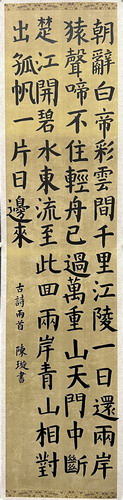 朝辭白帝彩雲間千里江陵一日還兩岸
猿聲啼不住輕舟已過萬重山天門中斷
楚江開碧水東流至此回兩岸青山相對
出孤帆一片日邊來
古詩兩首 陳璇書